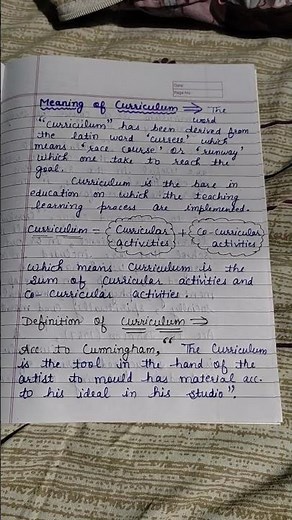 Date
Page No.
Meaning of Curriculum ⇒ The
word
"Curriculum" has been derived from
the latin word 'currere' which
means 'race course' or 'runway'
which one take to reach the
goal.
Curriculum is the base in
education on which the teaching
learning process are implemented.
Curriculum = Curricular activities + Co-curricular activities
which means curriculum is the
sum of curricular activities and
co-curricular activities.
Definition of Curriculum ⇒
Acc to Cunningham, "The Curriculum
is the tool in the hand of the
artist to mould has material acc.
to his ideal in his studio".